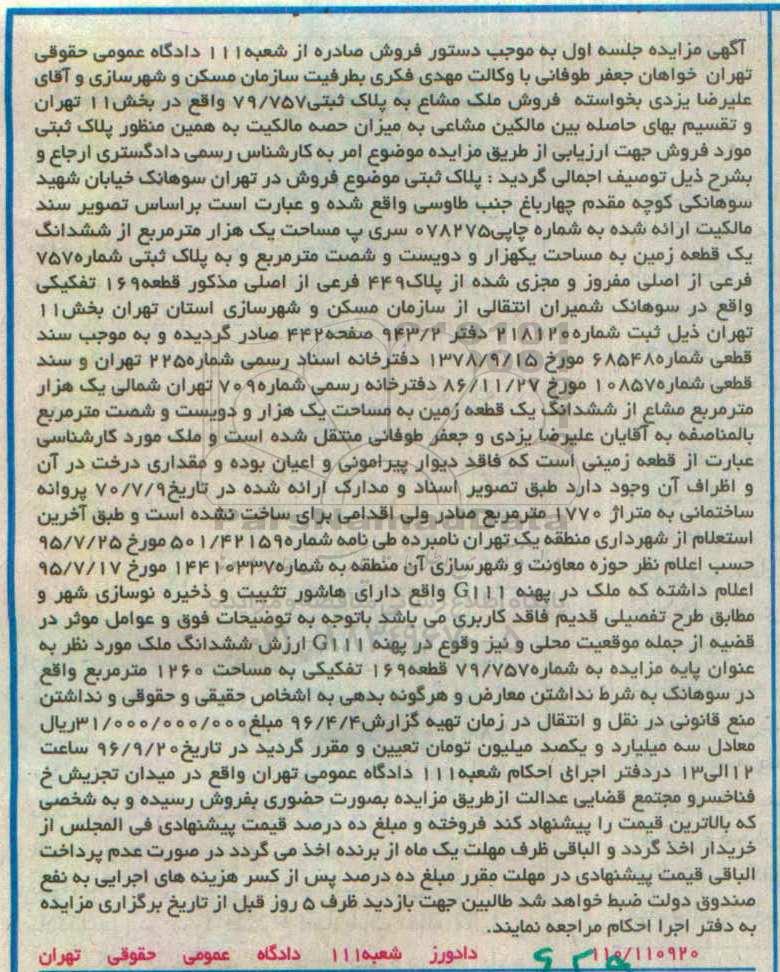 آگهی مزایده جلسه اول به موجب دستور فروش صادره از شعبه۱۱۱ دادگاه عمومی حقوقی
تهران خواهان جعفر طوفانی با وکالت مهدی فکری بطرفیت سازمان مسکن و شهرسازی و آقای
علیرضا یزدی بخواسته فروش ملک مشاع به پلاک ثبتی۷۹/۷۵۷ واقع در بخش۱۱ تهران
و تقسیم بهای حاصله بین مالکین مشاعی به میزان حصه مالکیت به همین منظور پلاک ثبتی
مورد فروش جهت ارزیابی از طریق مزایده موضوع امر به کارشناس رسمی دادگستری ارجاع و
بشرح ذیل توصیف اجمالی گردید : پلاک ثبتی موضوع فروش در تهران سوهانک خیابان شهید
سوهانکی کوچه مقدم چهارباغ جنب طاوسی واقع شده و عبارت است براساس تصویر سند
مالکیت ارائه شده به شماره چاپی۰۷۸۲۷۵ سری پ مساحت یک هزار مترمربع از ششدانگ
یک قطعه زمین به مساحت یکهزار و دویست و شصت مترمربع و به پلاک ثبتی شماره۷۵۷
فرعی از اصلی مفروز و مجزی شده از پلاک۴۴۹ فرعی از اصلی مذکور قطعه۱۶۹ تفکیکی
واقع در سوهانک شمیران انتقالی از سازمان مسکن و شهرسازی استان تهران بخش۱۱
تهران ذیل ثبت شماره۲۱۸۱۲۰ دفتر ۹۴۳/۲ صفحه۴۴۲ صادر گردیده و به موجب سند
قطعی شماره۶۸۵۴۸ مورخ ۱۳۷۸/۹/۱۵ دفترخانه اسناد رسمی شماره۲۲۵ تهران و سند
قطعی شماره۱۰۸۵۷ مورخ ۸۶/۱۱/۲۷ دفترخانه رسمی شماره۷۰۹ تهران شمالی یک هزار
مترمربع مشاع از ششدانگ یک قطعه زمین به مساحت یک هزار و دویست و شصت مترمربع
بالمناصفه به آقایان علیرضا یزدی و جعفر طوفانی منتقل شده است و ملک مورد کارشناسی
عبارت از قطعه زمینی است که فاقد دیوار پیرامونی و اعیان بوده و مقداری درخت در آن
و اطراف آن وجود دارد طبق تصویر اسناد و مدارک ارائه شده در تاریخ۷۰/۷/۹ پروانه
ساختمانی به متراژ ۱۷۷۰ مترمربع صادر ولی اقدامی برای ساخت نشده است و طبق آخرین
استعلام از شهرداری منطقه یک تهران نامبرده طی نامه شماره۵۰۱/۴۲۱۵۹ مورخ ۹۵/۷/۲۵
حسب اعلام نظر حوزه معاونت و شهرسازی آن منطقه به شماره۱۴۴۱۰۳۳۷ مورخ ۹۵/۷/۱۷
اعلام داشته که ملک در پهنه G111 واقع دارای هاشور تثبیت و ذخیره نوسازی شهر و
مطابق طرح تفصیلی قدیم فاقد کاربری می باشد باتوجه به توضیحات فوق و عوامل موثر در
قضیه از جمله موقعیت محلی و نیز وقوع در پهنه G111 ارزش ششدانگ ملک مورد نظر به
عنوان پایه مزایده به شماره۷۹/۷۵۷ قطعه۱۶۹ تفکیکی به مساحت ۱۲۶۰ مترمربع واقع
در سوهانک به شرط نداشتن معارض و هرگونه بدهی به اشخاص حقیقی و حقوقی و نداشتن
منع قانونی در نقل و انتقال در زمان تهیه گزارش۹۶/۴/۴ مبلغ۳۱/۰۰۰/۰۰۰/۰۰۰ریال
معادل سه میلیارد و یکصد میلیون تومان تعیین و مقرر گردید در تاریخ۹۶/۹/۲۰ ساعت
۱۲الی۱۳ دردفتر اجرای احکام شعبه۱۱۱ دادگاه عمومی تهران واقع در میدان تجریش خ
فناخسرو مجتمع قضایی عدالت ازطریق مزایده بصورت حضوری بفروش رسیده و به شخصی
که بالاترین قیمت را پیشنهاد کند فروخته و مبلغ ده درصد قیمت پیشنهادی فی المجلس از
خریدار اخذ گردد و الباقی ظرف مهلت یک ماه از برنده اخذ می گردد در صورت عدم پرداخت
الباقی قیمت پیشنهادی در مهلت مقرر مبلغ ده درصد پس از کسر هزینه های اجرایی به نفع
صندوق دولت ضبط خواهد شد طالبین جهت بازدید ظرف ۵ روز قبل از تاریخ برگزاری مزایده
به دفتر اجرا احکام مراجعه نمایند.
۱۱۰/۱۱۰۹۲۰ دادورز شعبه۱۱۱ دادگاه عمومی حقوقی تهران